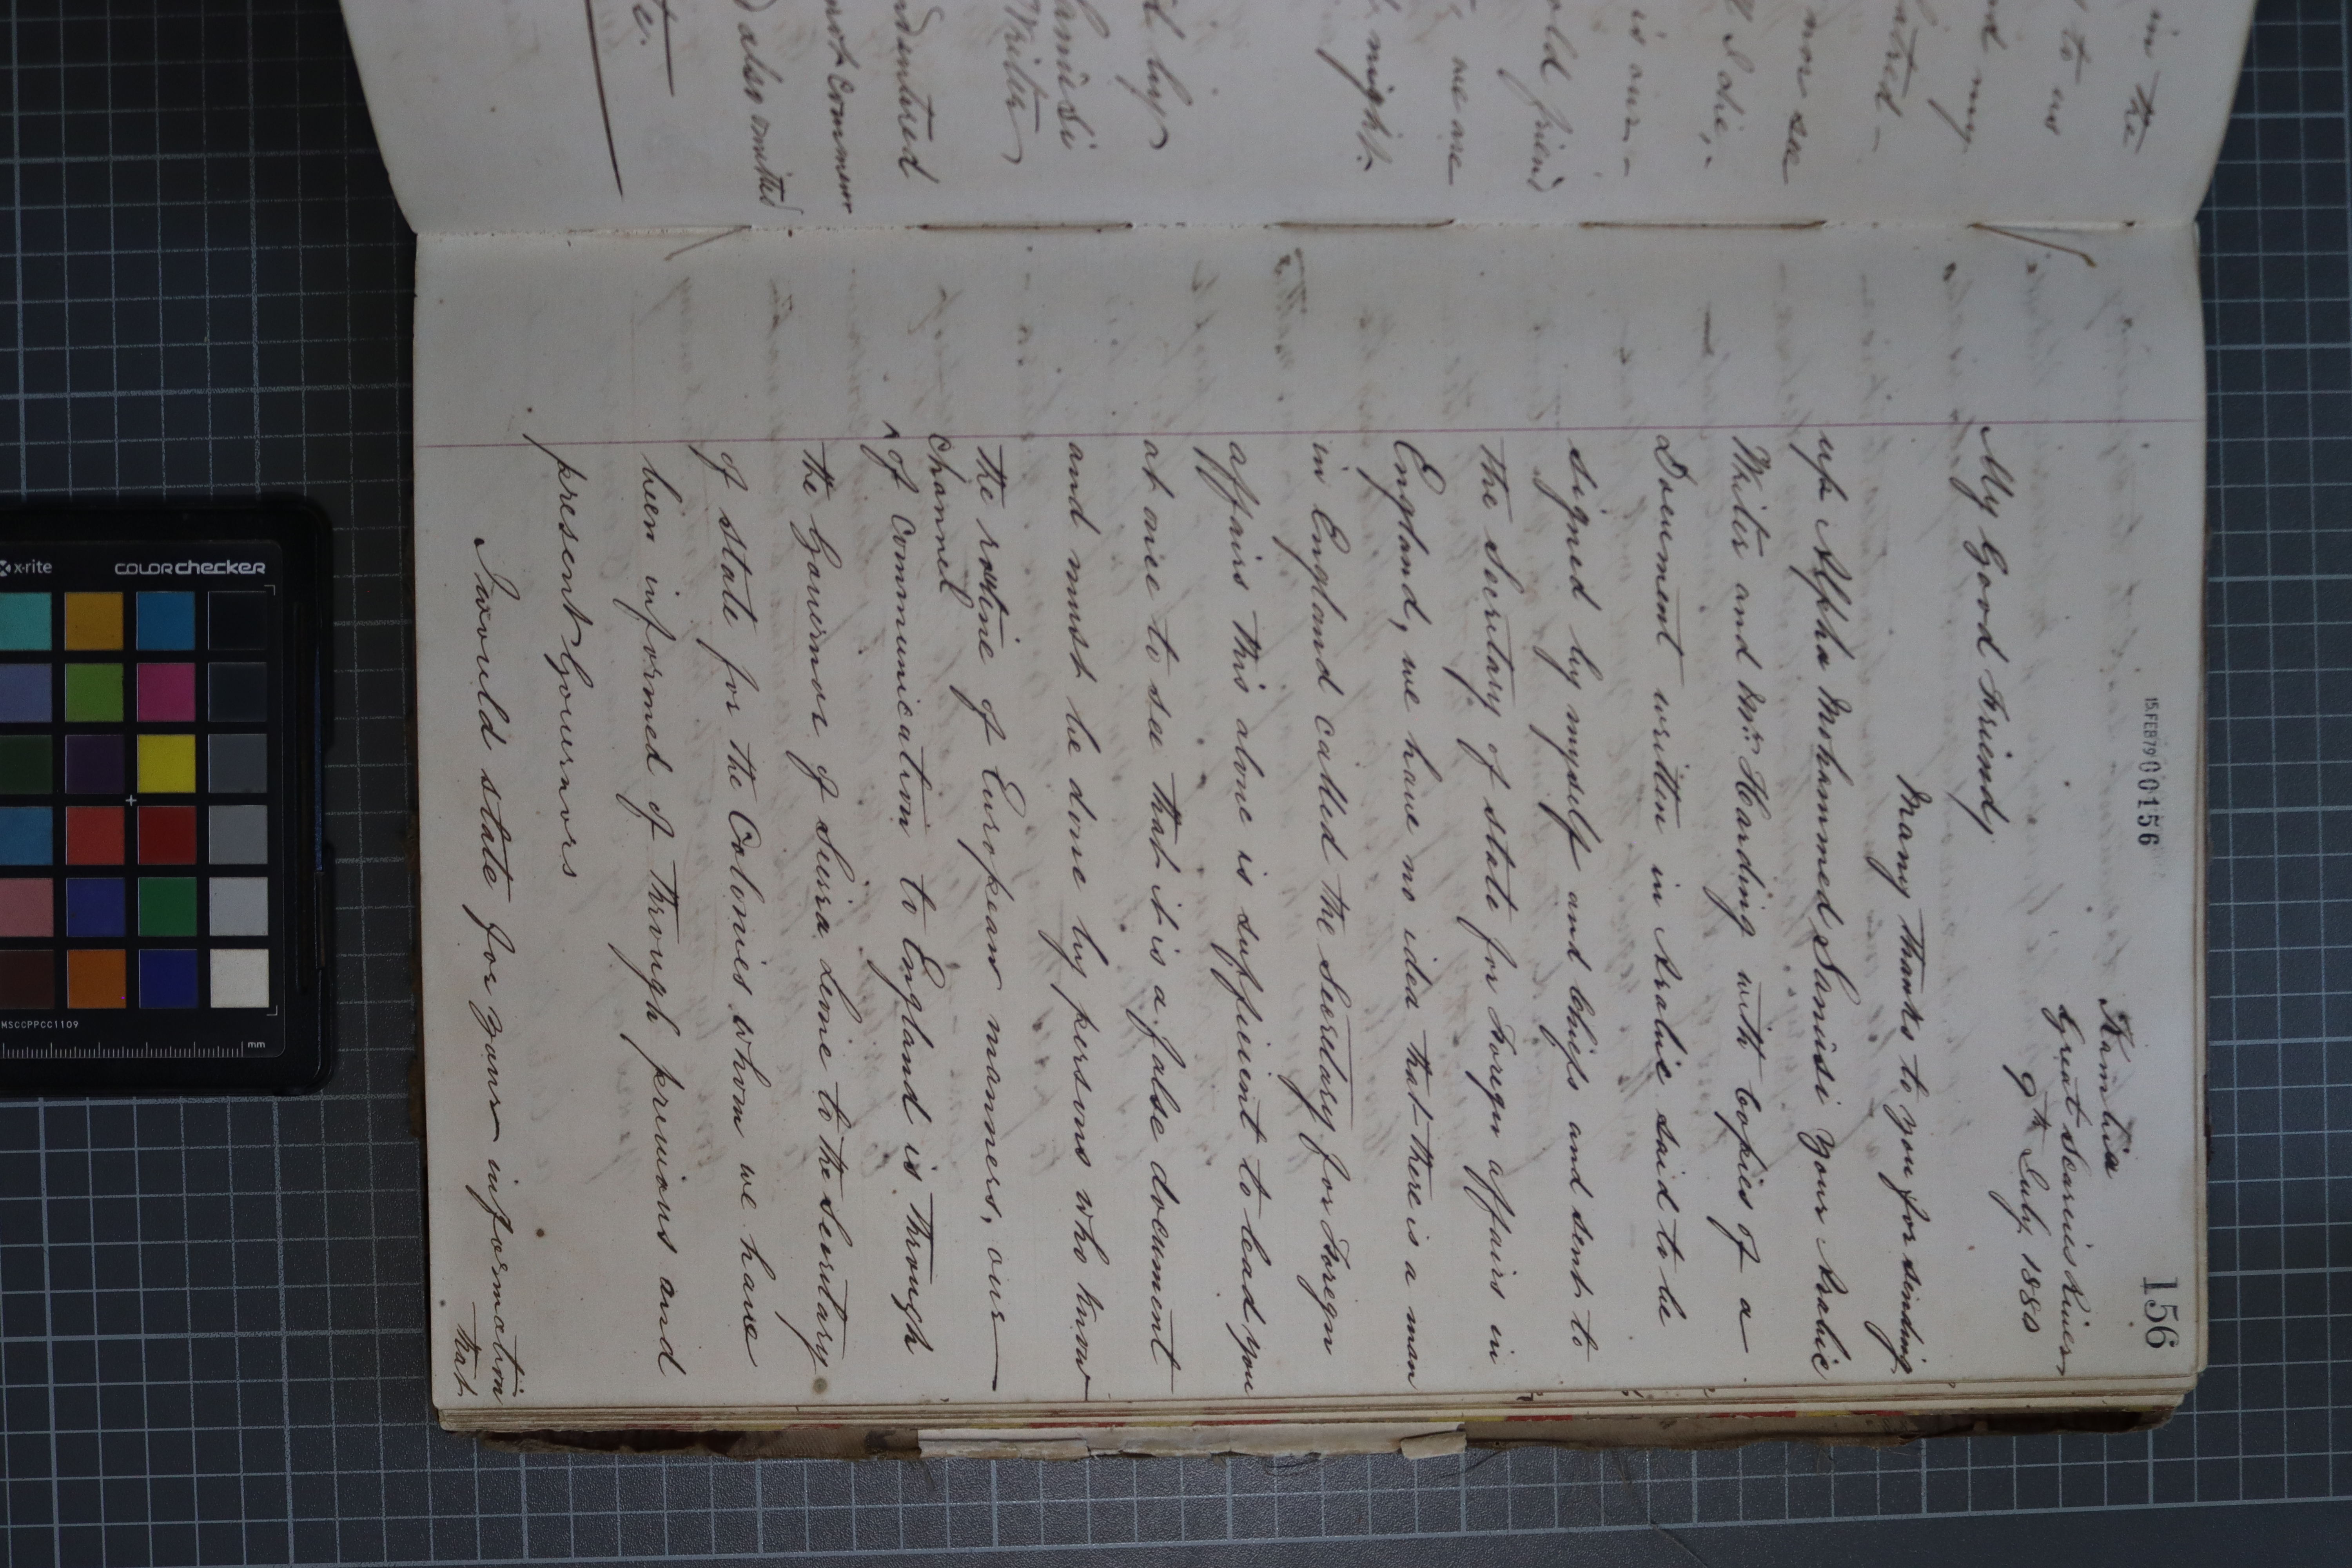 in the
to us
nd my
atred -
nor see
I die,-
is our -
old friend
we are
night.
d by
Sanusi
Writer
not commen
also omitted
te.
15.FEB79 000156
156
Kambia
Great Scarcies River
9th July, 1880
My Good Friend,
Many thanks to you for sending
up Alpha Mohammed Sanusi your Arabic
Writer and Mr. Harding with Copies of a
Document written in Arabic said to be
signed by myself and Chiefs and sent to
the Secretary of state for Foregn affairs in
England, we have no idea that there is a man
in England called the Secretary for Foregn
affairs this alone is suffecient to lead you
at once to see that it is a false document
and must be done by persons who know
the rotine of European manners, our
channel
^ of Communication to England is through
the Governor of Seira Leone to the secretary
of state for the Colonies whom we have
been informed of through previous and
present Governors
I would state for your information
that
x-rite
COLORchecker
MSCCPPCC1109
mm